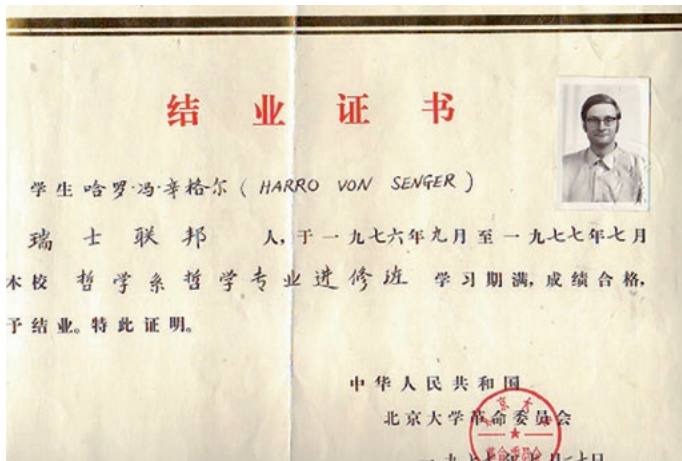 结业证书
学生哈罗·冯·辛格尔(HARRO VON SENGER)
瑞士联邦人,于一九七六年九月至一九七七年七月
本校哲学系哲学专业进修班学习期满,成绩合格,
予结业。特此证明。
中华人民共和国
北京大学革命委员会
一九七七年七月二十日